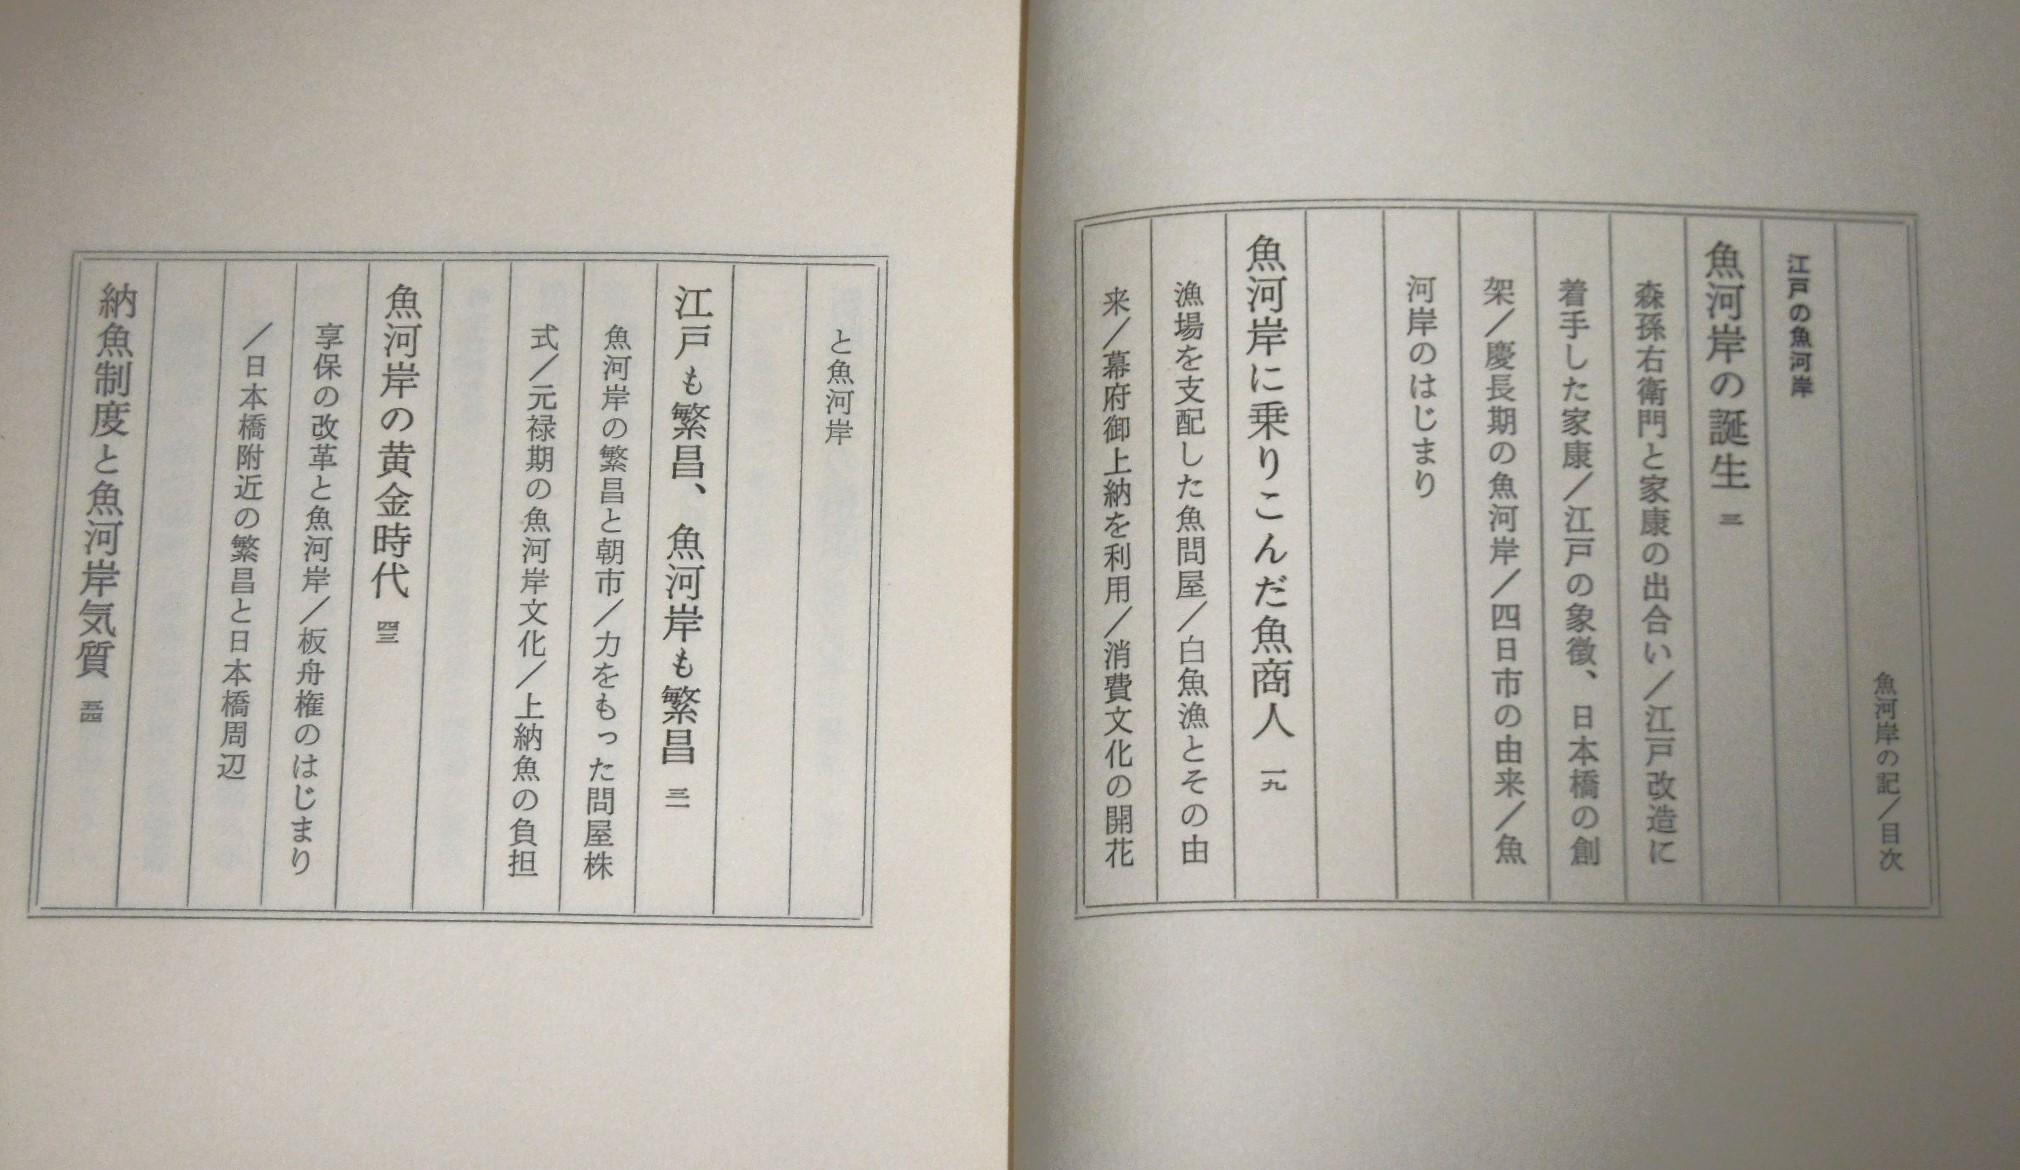 魚河岸の記／目次
江戸の魚河岸
魚河岸の誕生 三
森孫右衛門と家康の出合い／江戸改造に
着手した家康／江戸の象徴、日本橋の創
架／慶長期の魚河岸／四日市の由来／魚
河岸のはじまり
魚河岸に乗りこんだ魚商人 一九
漁場を支配した魚問屋／白魚漁とその由
来／幕府御上納を利用／消費文化の開花
と魚河岸
江戸も繁昌、魚河岸も繁昌 三一
魚河岸の繁昌と朝市／力をもった問屋株
式／元禄期の魚河岸文化／上納魚の負担
魚河岸の黄金時代 四三
享保の改革と魚河岸／板舟権のはじまり
／日本橋附近の繁昌と日本橋周辺
納魚制度と魚河岸気質 五四